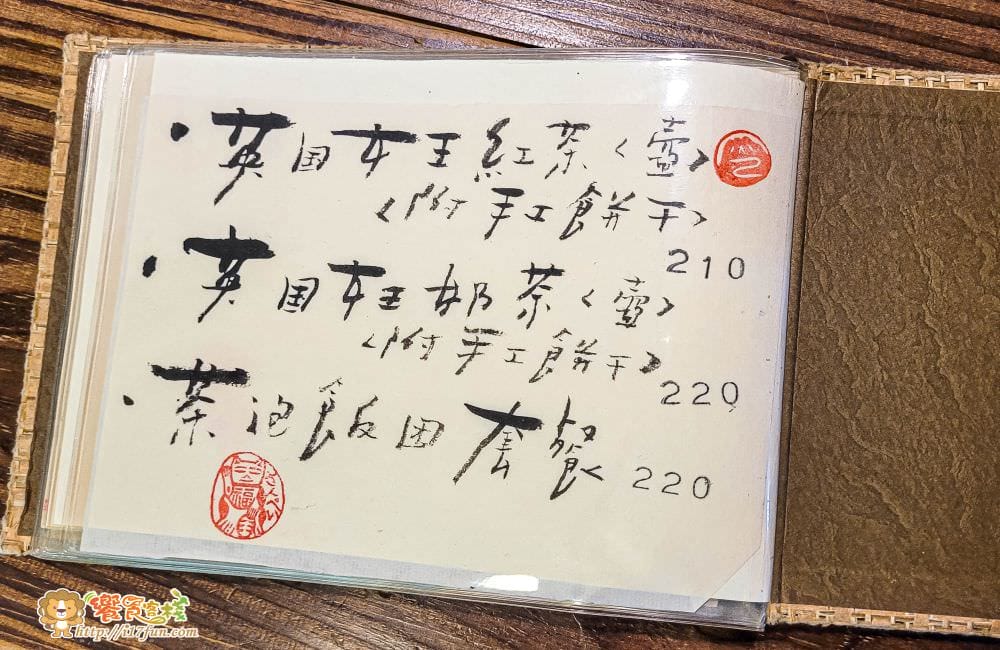 ・英国女王紅茶〈壺〉
〈附手工餅干〉
210
・英国女王奶茶〈壺〉
〈附手工餅干〉
220
・茶泡飯団套餐 220
饗食客棧
http://i17fun.com